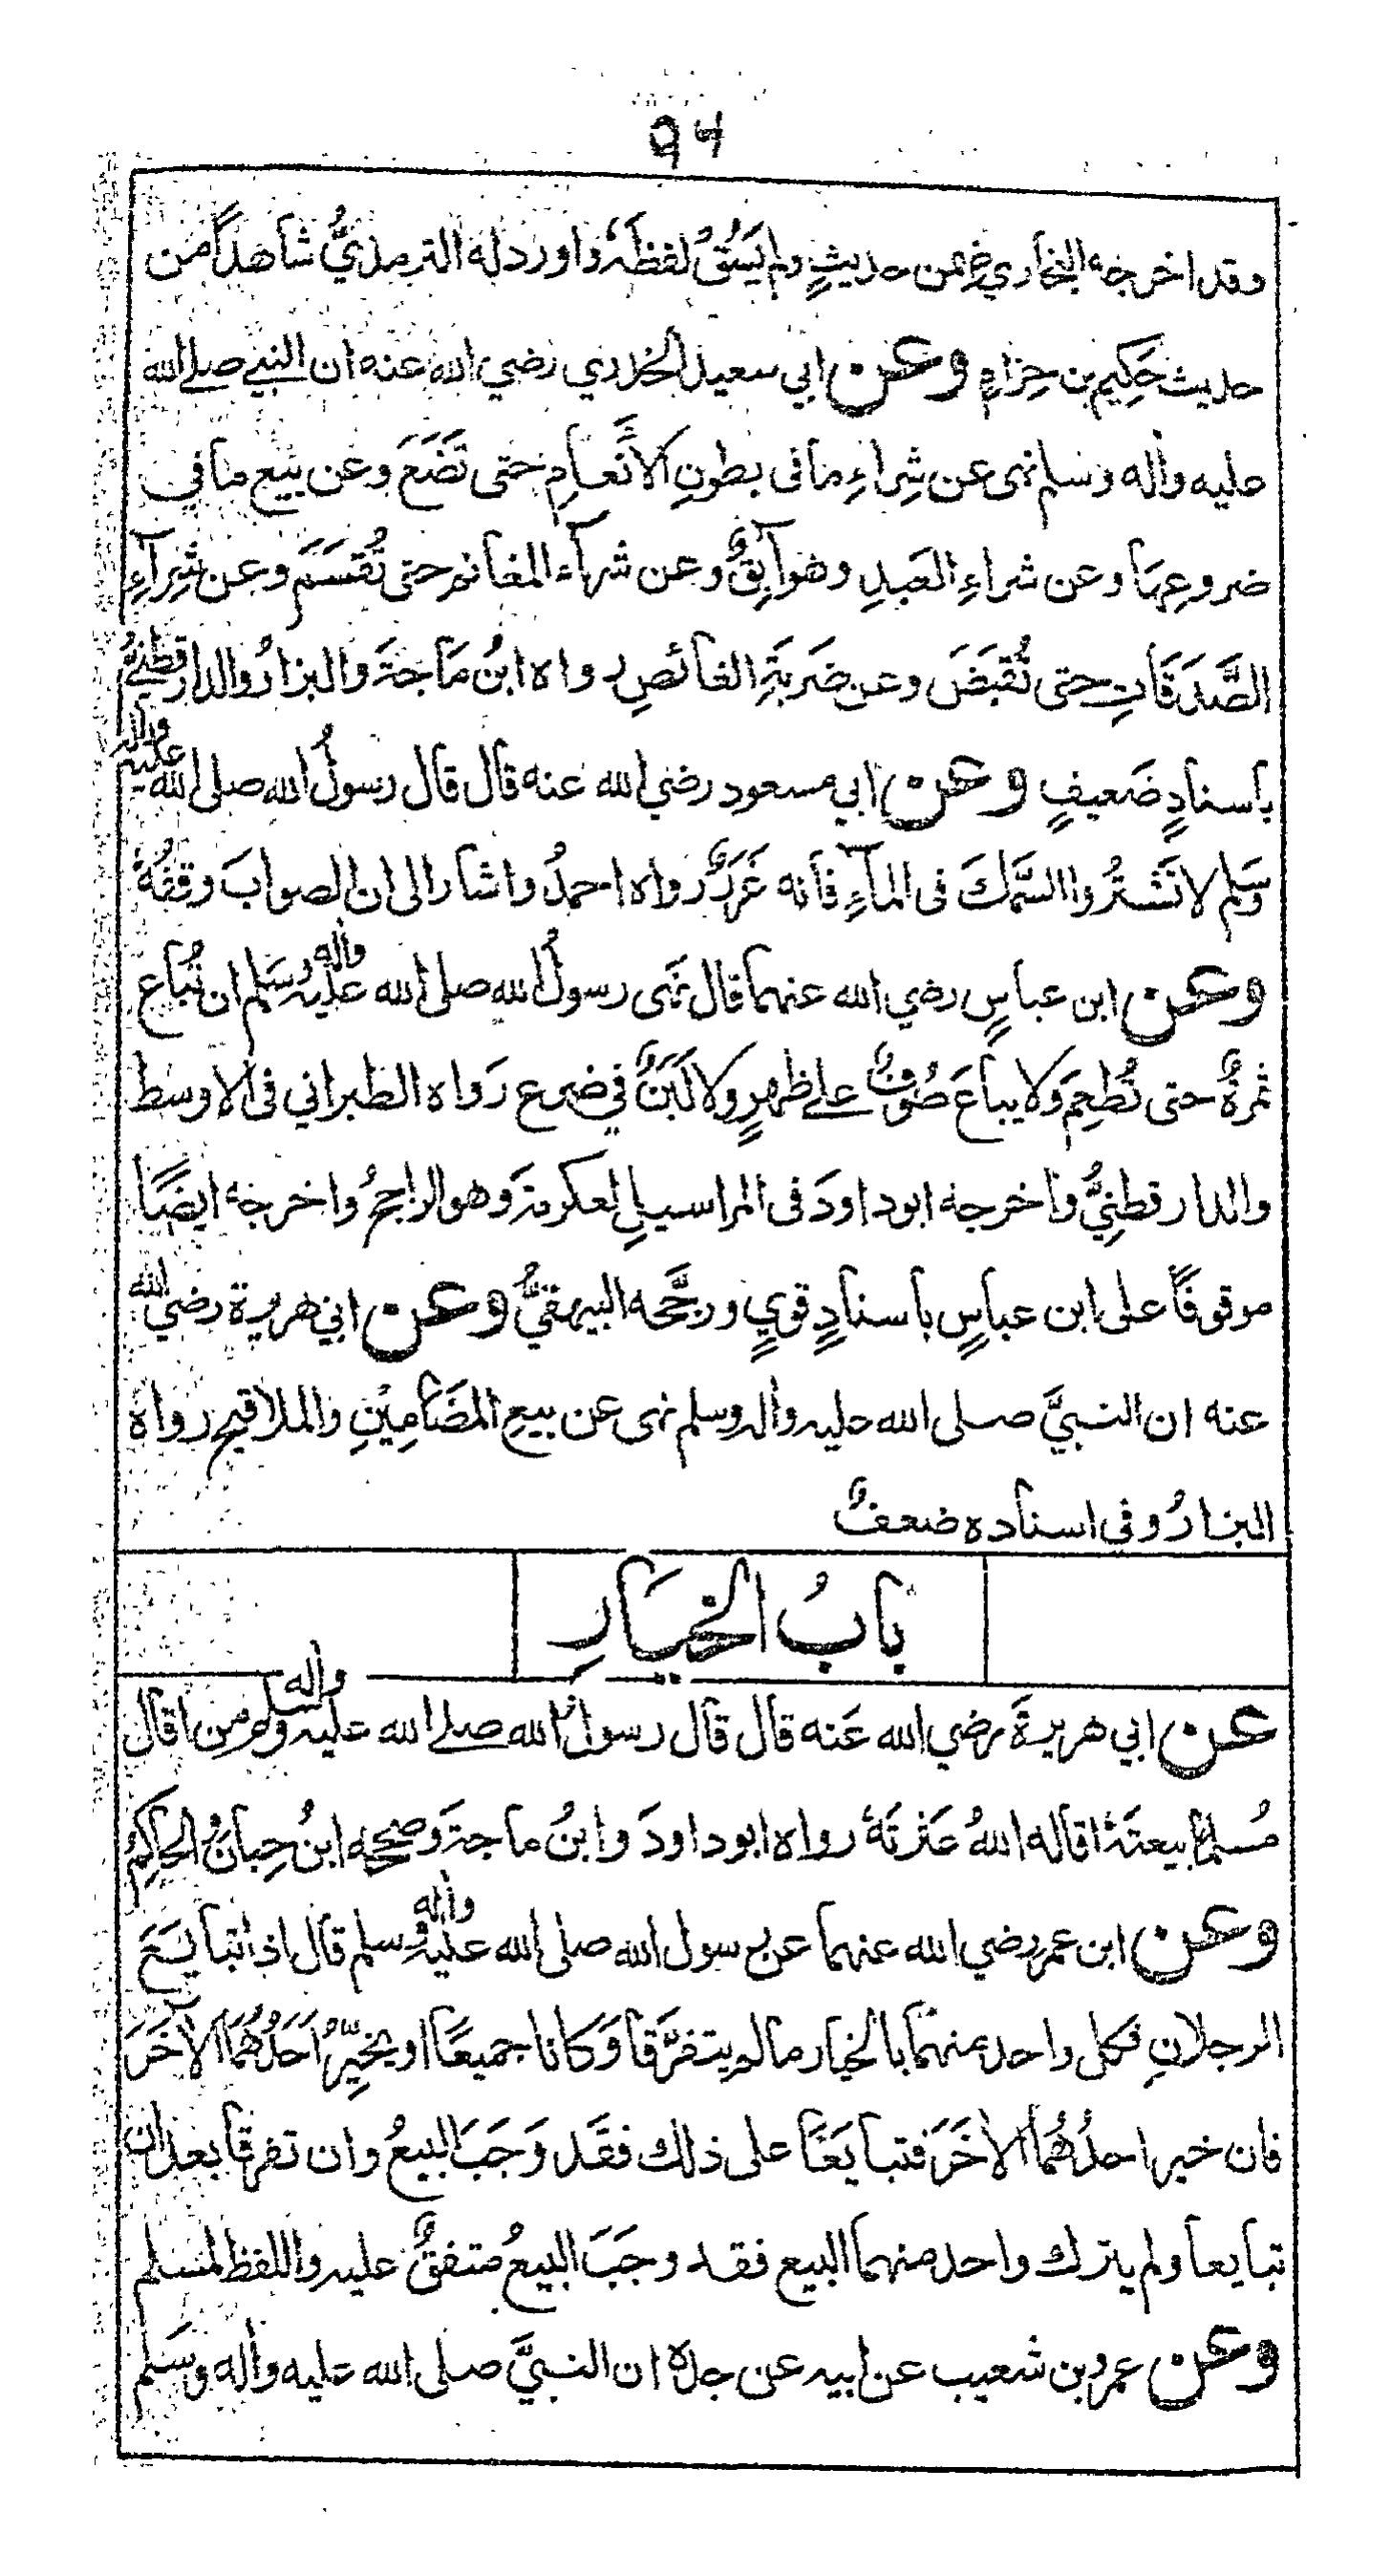 ٩٦
وقد اخرجه البخاري ضمن حديثٍ ولم يَسُقْ لفظَهٗ واورد له الترمذيُّ شاهداً من
حديث حَكِيمِ بن حِزامٍ وعن ابي سعيد الخدري رضي الله عنه ان النبي صلى الله
عليه واٰله وسلم نهى عن شِراءِ ما فى بطونِ الاَنَعامِ حتى تَضَعَ وعن بيع ما في
ضروعِها وعن شراءِ العَبدِ وهو آبِقٌ وعن شرآء المغانم حتى تُقسَمَ وعن شِرآءِ
الصَّدَقَاتِ حتى تُقبَضَ وعن ضَربَةِ الغائصِ رواه ابنُ مَاجَةَ والبزارُ والدارقطنيُّ
باسنادٍ ضَعيفٍ وعن ابي مسعود رضي الله عنه قال قال رسولُ الله صلى الله عليه واٰله
وسَلم لا تَشْتَرُوا السَّمَكَ فى المآءِ فانه غَرَرٌ رواه احمدُ واشار الى ان الصوابَ وقفُهٗ
وعن ابن عباسٍ رضي الله عنهما قال نَهى رسولُ الله صلى الله عليه واٰله وسَلم ان تُباع
ثمرةٌ حتى تُطعِمَ ولا يباعَ صُوفٌ على ظهرٍ ولا لَبَنٌ في ضرع رَواه الطبراني فى الاوسط
والدارقطنِيُّ واخرجه ابوداودَ فى المراسيلِ لعكرمةَ وهو الراجحُ واخرجه ايضًا
موقوفًا على ابن عباسٍ باسنادٍ قويٍ ورجَّحه البيهقيُّ وعن ابي هريرة رضي الله
عنه ان النبيَّ صلى الله عليه واٰله وسلم نهى عن بيعِ المضَامِيْنِ والملاقيحِ رواه
البزارُ وفى اسناده ضعفٌ
بابُ الخيَارِ
عن ابي هريرةَ رضي الله عَنه قال قال رسولُ الله صلى الله عليه واٰله وسلم من اقال
مُسلمًا بيعتَهٗ اقاله اللهُ عَثْرتَهٗ رواه ابوداودَ وابنُ ماجةَ وصححه ابنُ حِبانَ والحاكِمُ
وعن ابن عمر رضي الله عنهما عن رسول الله صلى الله عليه واٰله وسلم قال اذا تبايَعَ
الرجلانِ فكل واحد منهما بالخيار ما لم يتفرَّقا وَكانا جميعًا او يُخَيِّرُ اَحَدُهُمَا الاٰخَرَ
فان خير احدُهُمَا الاٰخَرَ فتبايَعَا على ذلك فقَد وَجَبَ البيعُ وان تفرقا بعد ان
تبايعا ولم يترك واحد منهما البيع فقد وجَبَ البيعُ متفقٌ عليه واللفظ لمسلم
وعن عمرو بن شعيب عن ابيه عن جده ان النبيَّ صلى الله عليه واٰله وسَلم